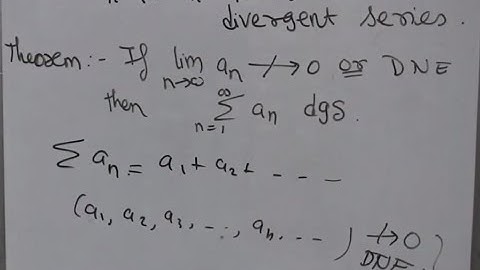 divergent series.
Theorem:- If lim n→∞ an ↛ 0 or DNE
then ∞ Σ n=1 an dgs.
Σ an = a1 + a2 + - - -
(a1, a2, a3, ..., an, ...) ↛ 0
DNE